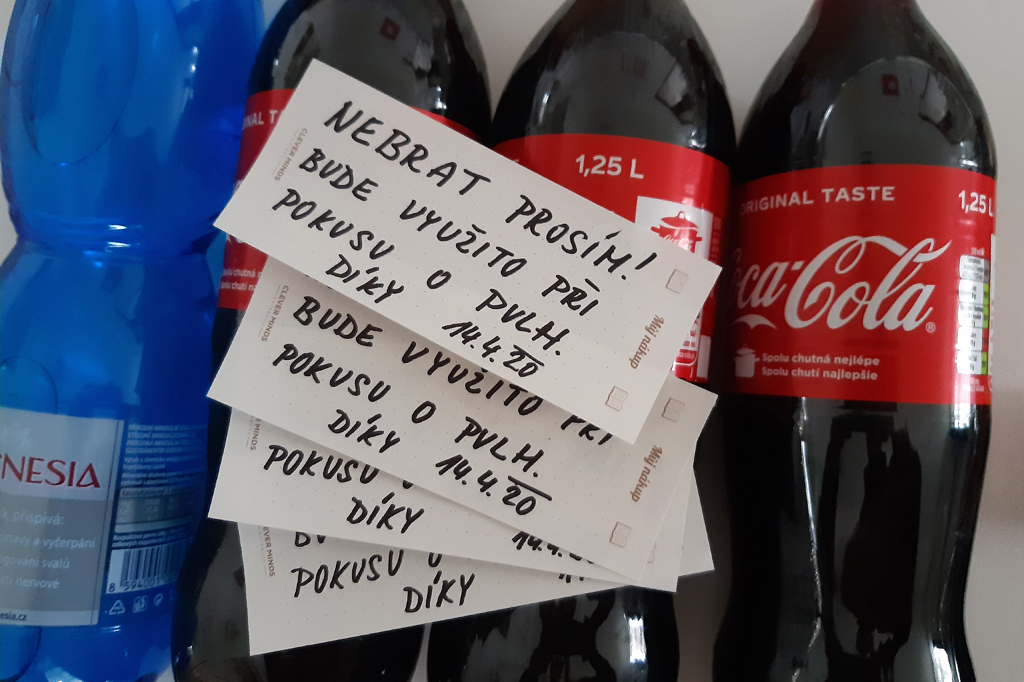 NEBRAT PROSÍM!
BUDE VYUŽITO PŘI
POKUSU O PVLH.
DÍKY 14.4.20
CLEVER MINDS
Můj nákup
BUDE VYUŽITO PŘI
POKUSU O PVLH.
DÍKY 14.4.20
CLEVER MINDS
Můj nákup
POKUSU
DÍKY 14.4.
POKUSU O
DÍKY
CLEVER MINDS
NAL T
1,25 L
ORIGINAL TASTE 1,25 L
Coca-Cola
Spolu chutná nejlépe
Spolu chutí najlepšie
NESIA
přispívá:
únavy a vyčerpání
svalů
nervové
nesia.cz